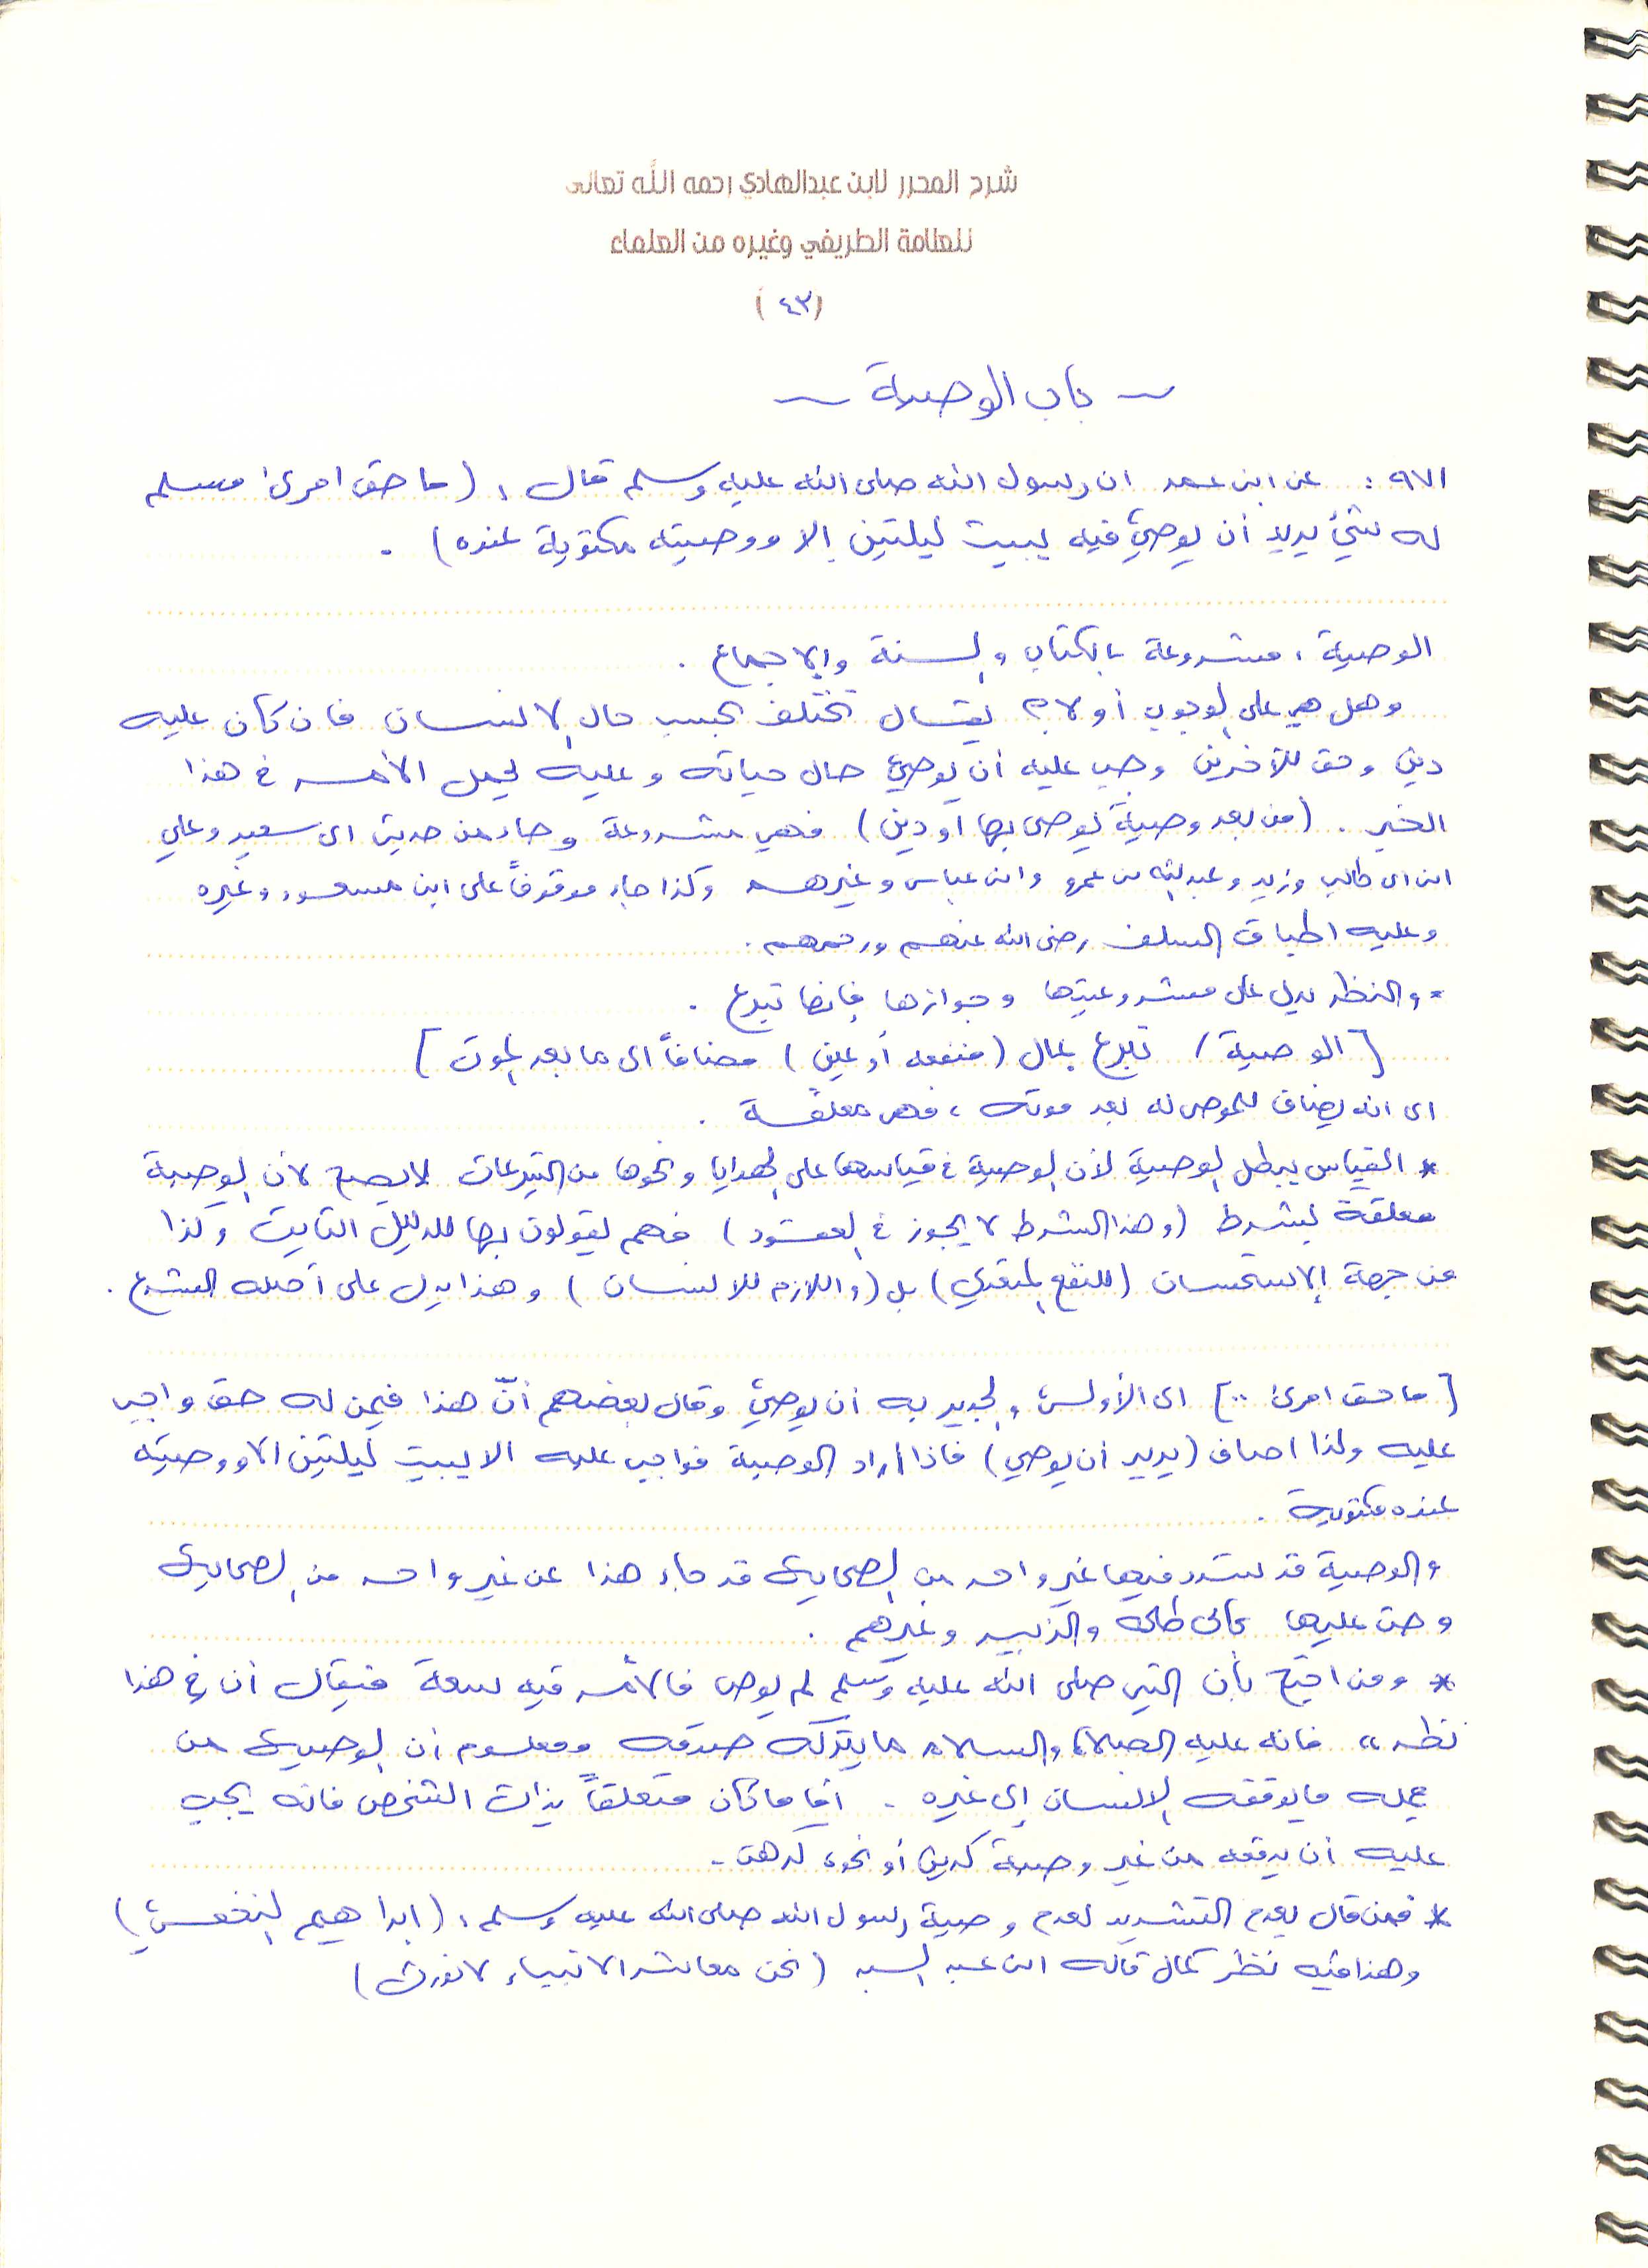 شرح المحرر لابن عبدالهادي رحمه الله تعالى
للعلامة الطريفي وغيره من العلماء
(٤٣)
~ باب الوصية ~
٩٧١ : عن ابن عمر ان رسول الله صلى الله عليه وسلم قال : (ما حق امرئ مسلم
له شيء يريد أن يوصي فيه يبيت ليلتين إلا ووصيته مكتوبة عنده) .
الوصية : مشروعة بالكتاب والسنة والاجماع .
وهل هي على الوجوب أو لا ؟ يقال تختلف بحسب حال الانسان فان كان عليه
دين وحق للآخرين وجب عليه أن يوصي حال حياته وعليه يحمل الأمر في هذا
الخبر . (من بعد وصية يوصى بها أو دين) فهي مشروعة وجاء من حديث ابي سعيد وعلي
ابن ابي طالب وزيد وعبدالله بن عمرو وابن عباس وغيرهم وكذا جاء موقوفاً على ابن مسعود وغيره
وعليه اطباق السلف رضي الله عنهم ورحمهم .
* والنظر يدل على مشروعيتها وجوازها فإنها تبرع .
[ الوصية / تبرع بمال (منفعه أو عين) مضافاً الى ما بعد الموت ]
اي انه يضاف للموصى له بعد موته ، فهي معلقة .
* القياس يبطل الوصية لأن الوصية في قياسها على الهدايا ونحوها من التبرعات لا يصح لأن الوصية
معلقة بشرط (وهذا الشرط لا يجوز في العقود) فهم يقولون بها للدليل الثابت وكذا
من جهة الاستحسان (للنفع المتعدي) بل (واللازم للانسان) وهذا يدل على أصله الشرع .
[ ما حق امرئ ..] اي الأولى والجدير به أن يوصي وقال بعضهم أنّ هذا فيمن له حق واجب
عليه ولذا اضاف (يريد أن يوصي) فاذا اراد الوصية فواجب عليه الا يبيت ليلتين الا ووصيته
عنده مكتوبة .
والوصية قد شدد فيها غير واحد من الصحابة قد جاء هذا عن غير واحد من الصحابة
وحث عليها كأبي طلحة والزبير وغيرهم .
* ومن احتج بأن النبي صلى الله عليه وسلم لم يوص فالأمر فيه سعة فيقال أن في هذا
نظر ،، فانه عليه الصلاة والسلام ما يتركه صدقه ومعلوم أن الوصية من
عمله ما يوقفه الانسان إلى غيره . أما ما كان متعلقاً بذات الشخص فانه يجب
عليه أن يدفعه من غير وصية كدين أو نحوه كرهن .
* فمن قال بعدم التشديد لعدم وصية رسول الله صلى الله عليه وسلم : (ابراهيم النخعي)
وهذا فيه نظر كما قاله ابن عبد البر (نحن معاشر الانبياء لا نورث)